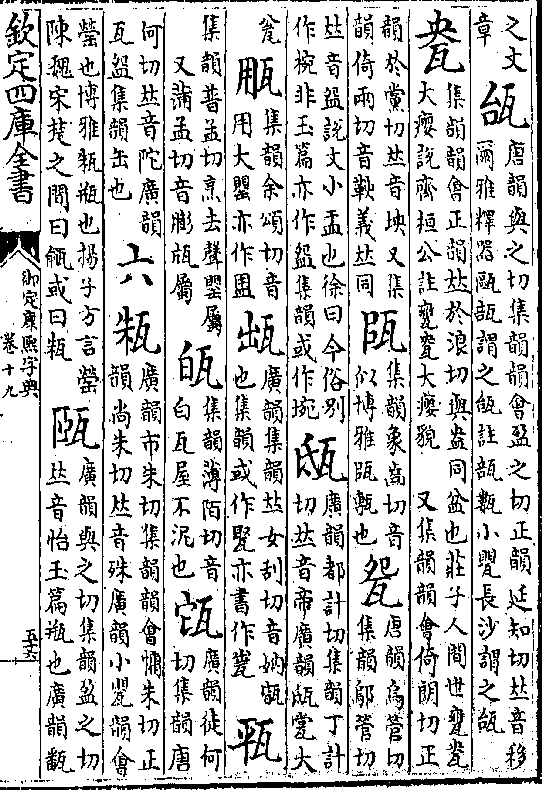 之丈
章
瓵
唐韻與之切集韻韻會盈之切正韻延知切𠀤音移
爾雅釋器甌瓿謂之瓵註瓿甊小甖長沙謂之瓵
㼜
集韻韻會正韻𠀤於浪切與盎同盆也莊子人間世甕㼜
大癭說齊桓公註甕㼜大癭貌 又集韻韻會倚朗切正
韻於黨切𠀤音坱又集
韻倚兩切音鞅義𠀤同
集韻象齒切音
似博雅甎也
㼝
唐韻烏管切
集韻鄔管切
𠀤音盌說文小盂也徐曰今俗別
作椀非玉篇亦作盌集韻或作
廣韻都計切集韻丁計
切𠀤音帝廣韻甕大
瓮
集韻余頌切音
用大甖亦作
廣韻集韻𠀤女刮切音妠
也集韻或作亦書作
集韻普孟切烹去聲甖屬
又蒲孟切音膨瓶屬
㼟
集韻薄陌切音
白瓦屋不泥也
㼠
廣韻徒何
切集韻唐
何切𠀤音陀廣韻
瓦盌集韻缶也
六
㼡
廣韻市朱切集韻韻會慵朱切正
韻尚朱切𠀤音殊廣韻小甖韻會
甇也博雅㼡瓶也揚子方言甇
陳魏宋楚之間曰或曰㼡
㼢
廣韻與之切集韻盈之切
𠀤音怡玉篇瓶也廣韻
欽定四庫全書
御定康熙字典
卷十九